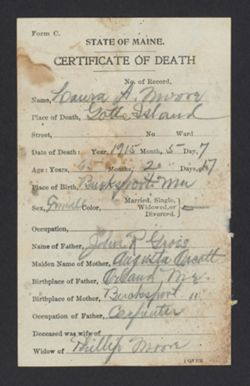 Form C.
STATE OF MAINE.
CERTIFICATE OF DEATH
No. of Record,
Name, Laura A. Moore
Place of Death, Gotts Island
Street, No Ward
Date of Death: Year, 1915 Month, 5 Day, 7
Age: Years, 65 Months, 2 Days, 17
Place of Birth, Bucksport Me
Married, Single,
Sex, Female Color, Widowed, or
Divorced.
Occupation,
Name of Father, John R Gross
Maiden Name of Mother, Augusta Orcutt
Birthplace of Father, Orland Me.
Birthplace of Mother, Bucksport "
Occupation of Father, Carpenter
Deceased was wife of
Widow of Phillip Moore
(OVER